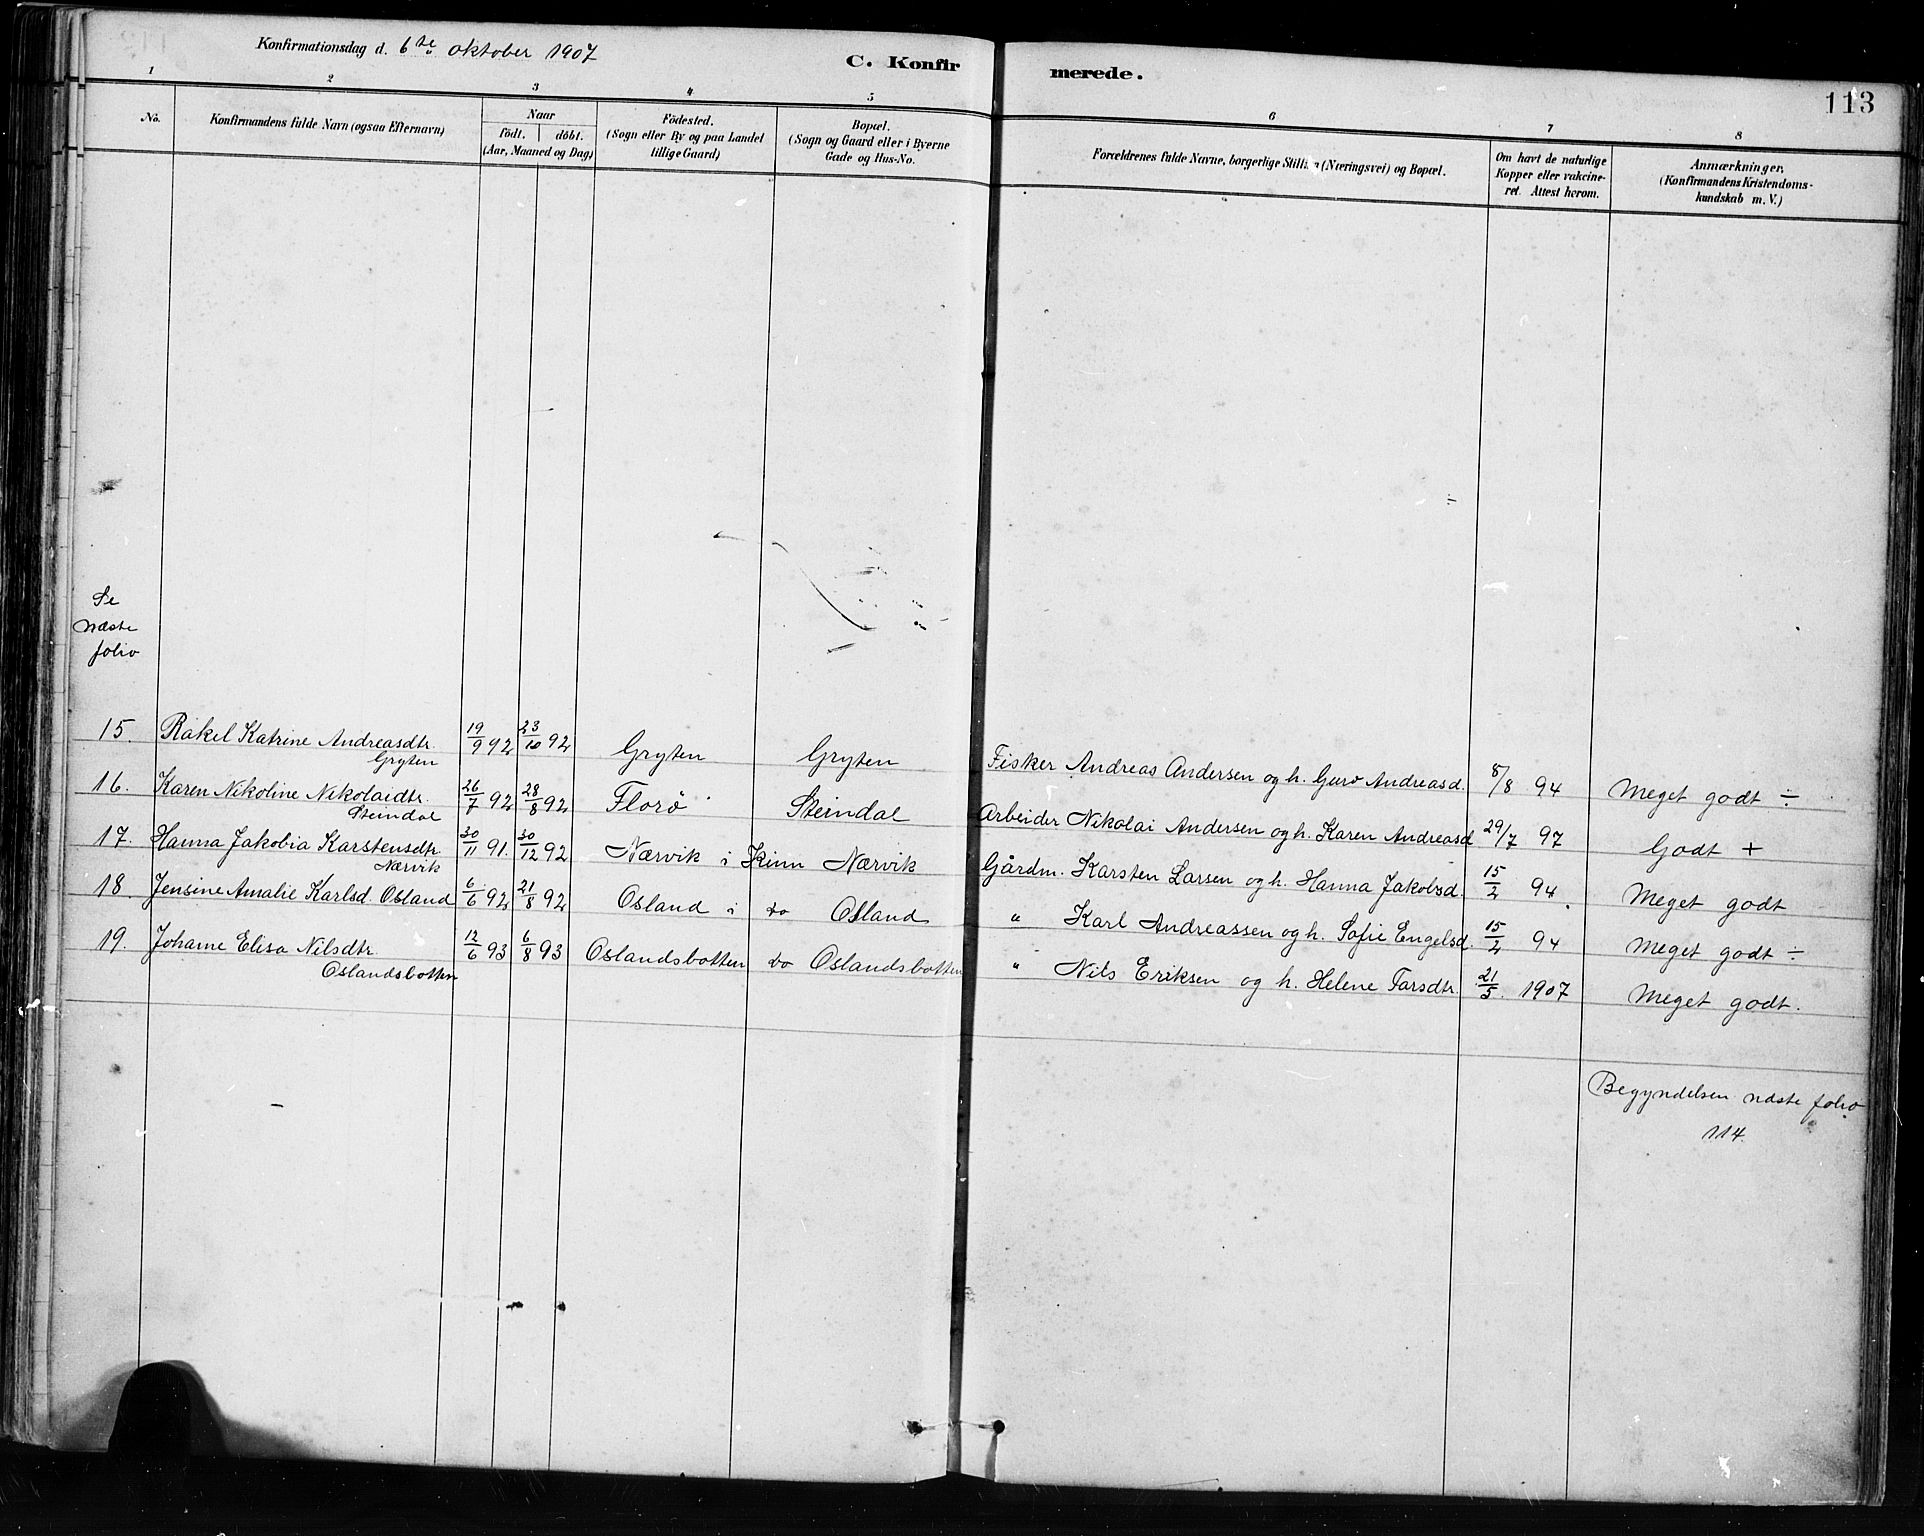 Konfirmationsdag d. 6te oktober 1907
C. Konfirmerede.
113
1 2 3 4 5 6 7 8
No.
Konfirmandens fulde Navn (ogsaa Efternavn)
Naar
födt. döbt.
(Aar, Maaned og Dag)
Födested.
(Sogn eller By og paa Landet
tillige Gaard)
Bopæl.
(Sogn og Gaard eller i Byerne
Gade og Hus-No.
Forældrenes fulde Navne, borgerlige Stilling (Næringsvei) og Bopæl.
Om havt de naturlige
Kopper eller vakcine-
ret. Attest herom.
Anmærkninger,
(Konfirmandens Kristendoms-
kundskab m. V.)
Se
næste
folio
15. Rakel Katrine Andreasdtr. 19/9 92 23/10 92 Gryten Gryten Fisker Andreas Andersen og h. Guro Andreasd. 8/8 94 Meget godt ÷
Gryten
16. Karen Nikoline Nikolaidtr. 26/7 92 28/8 92 Florö Steindal Arbeider Nikolai Andersen og h. Karen Andreasd 29/7 97 Godt +
Steindal
17. Hanna Jakobia Karstensdtr 30/11 91. 30/12 92 Nærvik i Kinn Nærvik Gårdm. Karsten Larsen og h. Hanna Jakobsd. 15/2 94. Meget godt
Nærvik
18 Jensine Amalie Karlsd. Osland 6/6 92 21/8 92 Osland i do Osland " Karl Andreassen og h. Sofie Engelsd. 15/2 94 Meget godt ÷
19. Johanne Elisa Nilsdtr. 12/6 93 6/8 93 Oslandsbotten do Oslandsbotten " Nils Eriksen og h. Helene Larsdtr. 21/5. 1907 Meget godt.
Oslandsbotten
Begyndelsen næste folio
114